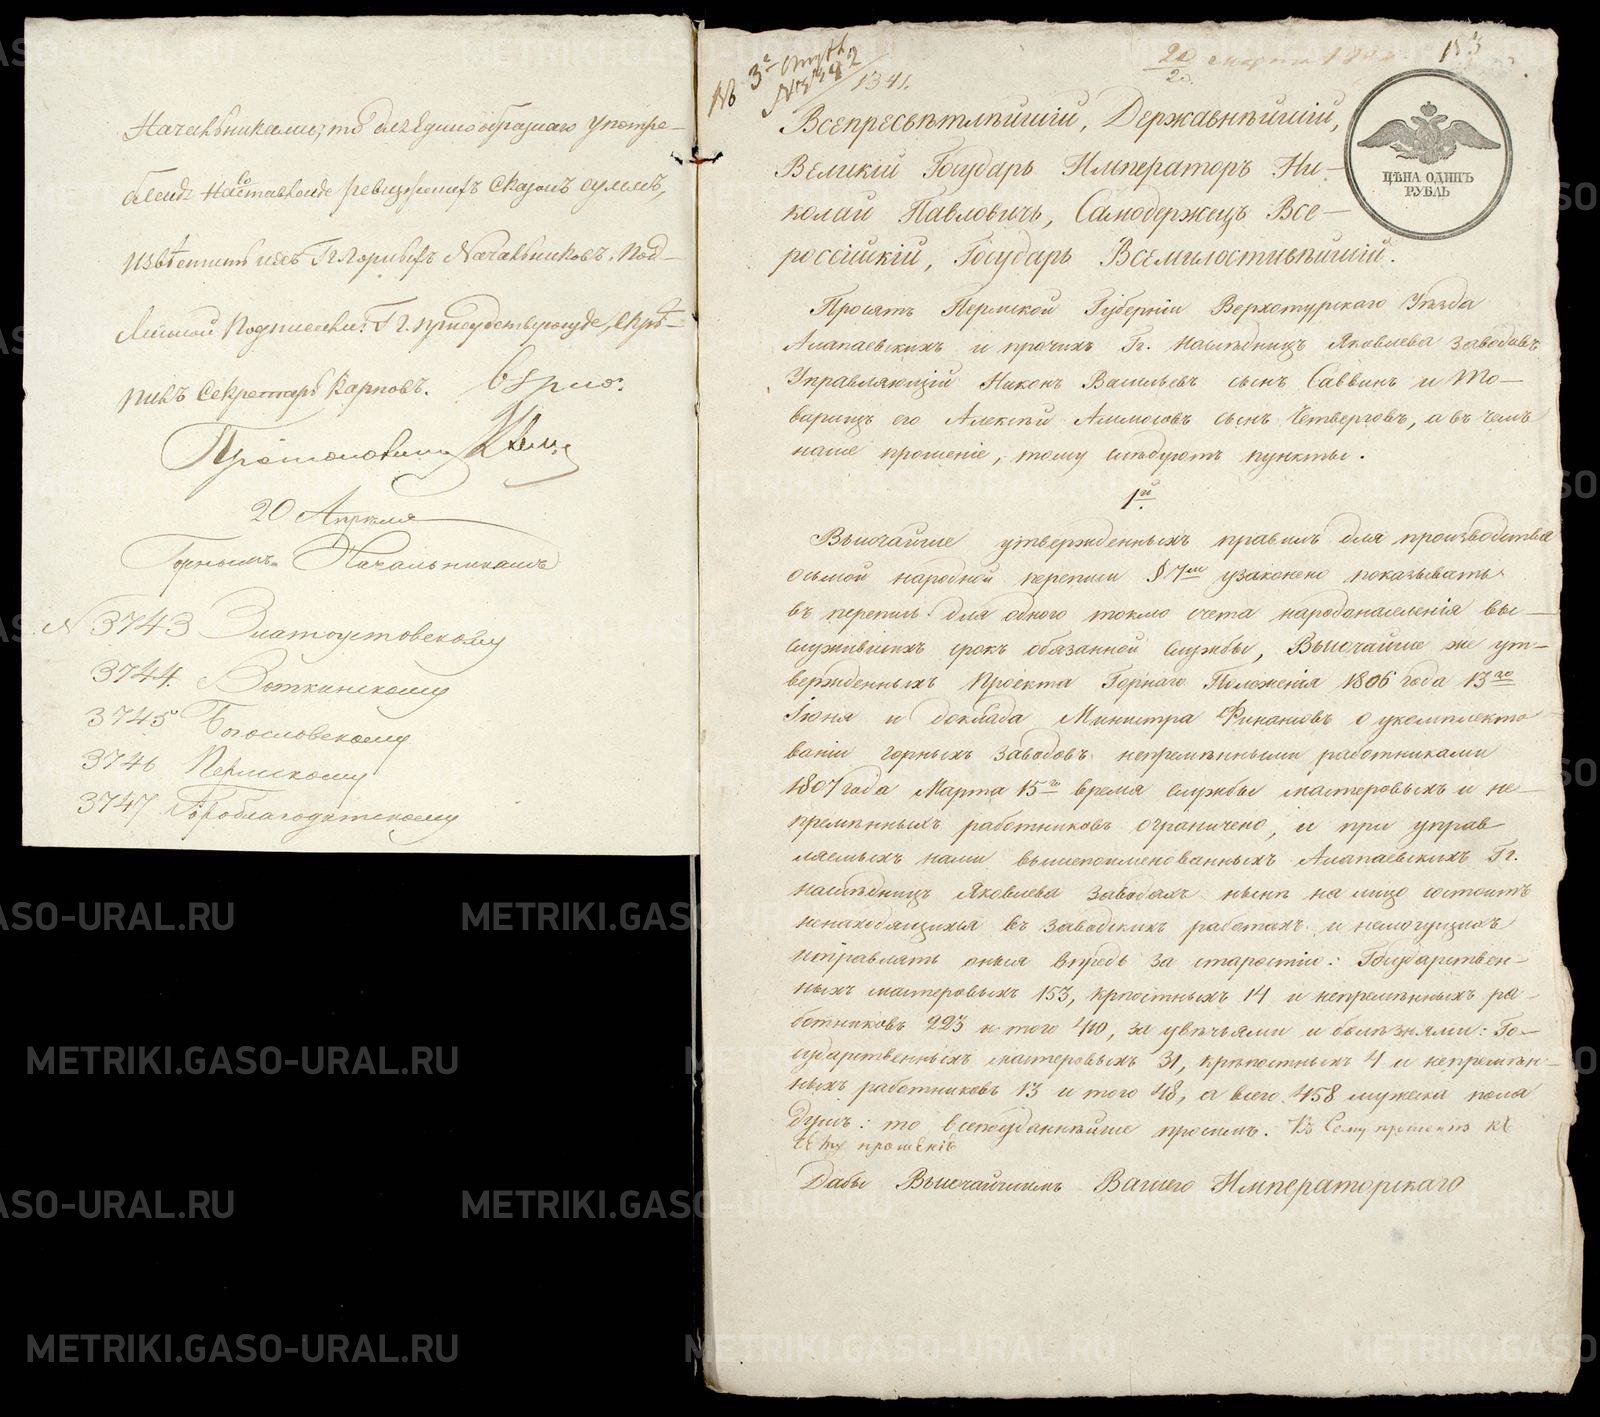 Начальниками, то для единообразнаго употре-
бленія
извѣстить ихъ Гг. Горныхъ Начальниковъ. Под-
линной подписали: Гг. присудствующіе, скрѣ-
пилъ Секретарь Карповъ. вѣрно:
20 Апрѣля
Горнымъ Начальникамъ
№ 3743 Златоустовскому
3744. Воткинскому
3745 Богословскому
3746 Пермскому
3747 Гороблагодатскому
№ 1341.
20 марта
153
ЦѢНА ОДИНЪ
РУБЛЬ
Всепресвѣтлѣйшій, Державнѣйшій,
Великій Государь Императоръ Ни-
колай Павловичъ, Самодержецъ Все-
россійскій, Государь Всемилостивѣйшій.
Просятъ Пермской Губерніи Верхотурскаго Уѣзда
Алапаевскихъ и прочихъ Гг. наслѣдницъ Яковлева заводовъ
Управляющій Никонъ Васильевъ сынъ Саввинъ и То-
варищъ его Алексѣй сынъ Четверговъ, а въ чемъ
наше прошеніе, тому слѣдуютъ пункты.
1й
Высочайше утвержденныхъ правилъ для производства
осьмой народной переписи § 7мъ узаконено показывать
въ перепись для одного токмо счета народонаселенія вы-
служившихъ срокъ обязанной службы, Высочайше же ут-
вержденныхъ Проекта Горнаго Положенія 1806 года 13го
Іюня и доклада Министра Финансовъ о укомплекто
ваніи горныхъ заводовъ непремѣнными работниками
1807 года Марта 15го время службы мастеровыхъ и не-
премѣнныхъ работниковъ ограничено, и при управ
ляемыхъ нами вышепоименованныхъ Алапаевскихъ Гг.
наслѣдницъ Яковлева заводахъ нынѣ на лицо состоитъ
ненаходящихся въ заводскихъ работахъ и немогущихъ
исправлять оныя впредь за старостію: Государствен-
ныхъ мастеровыхъ 153, крѣпостныхъ 14 и непремѣнныхъ ра-
ботниковъ 223 и того 410, за увѣчьями и болѣзнями: Го-
сударственныхъ мастеровыхъ 31, крѣпостныхъ 4 и непремѣн-
ныхъ работниковъ 13 и того 48, а всего 458 мужеска пола
душъ: то всеподданнѣйше просимъ. Къ сему прошенію
прошеніе
Дабы Высочайшимъ Вашего Императорскаго
METRIKI.GASO-URAL.RU